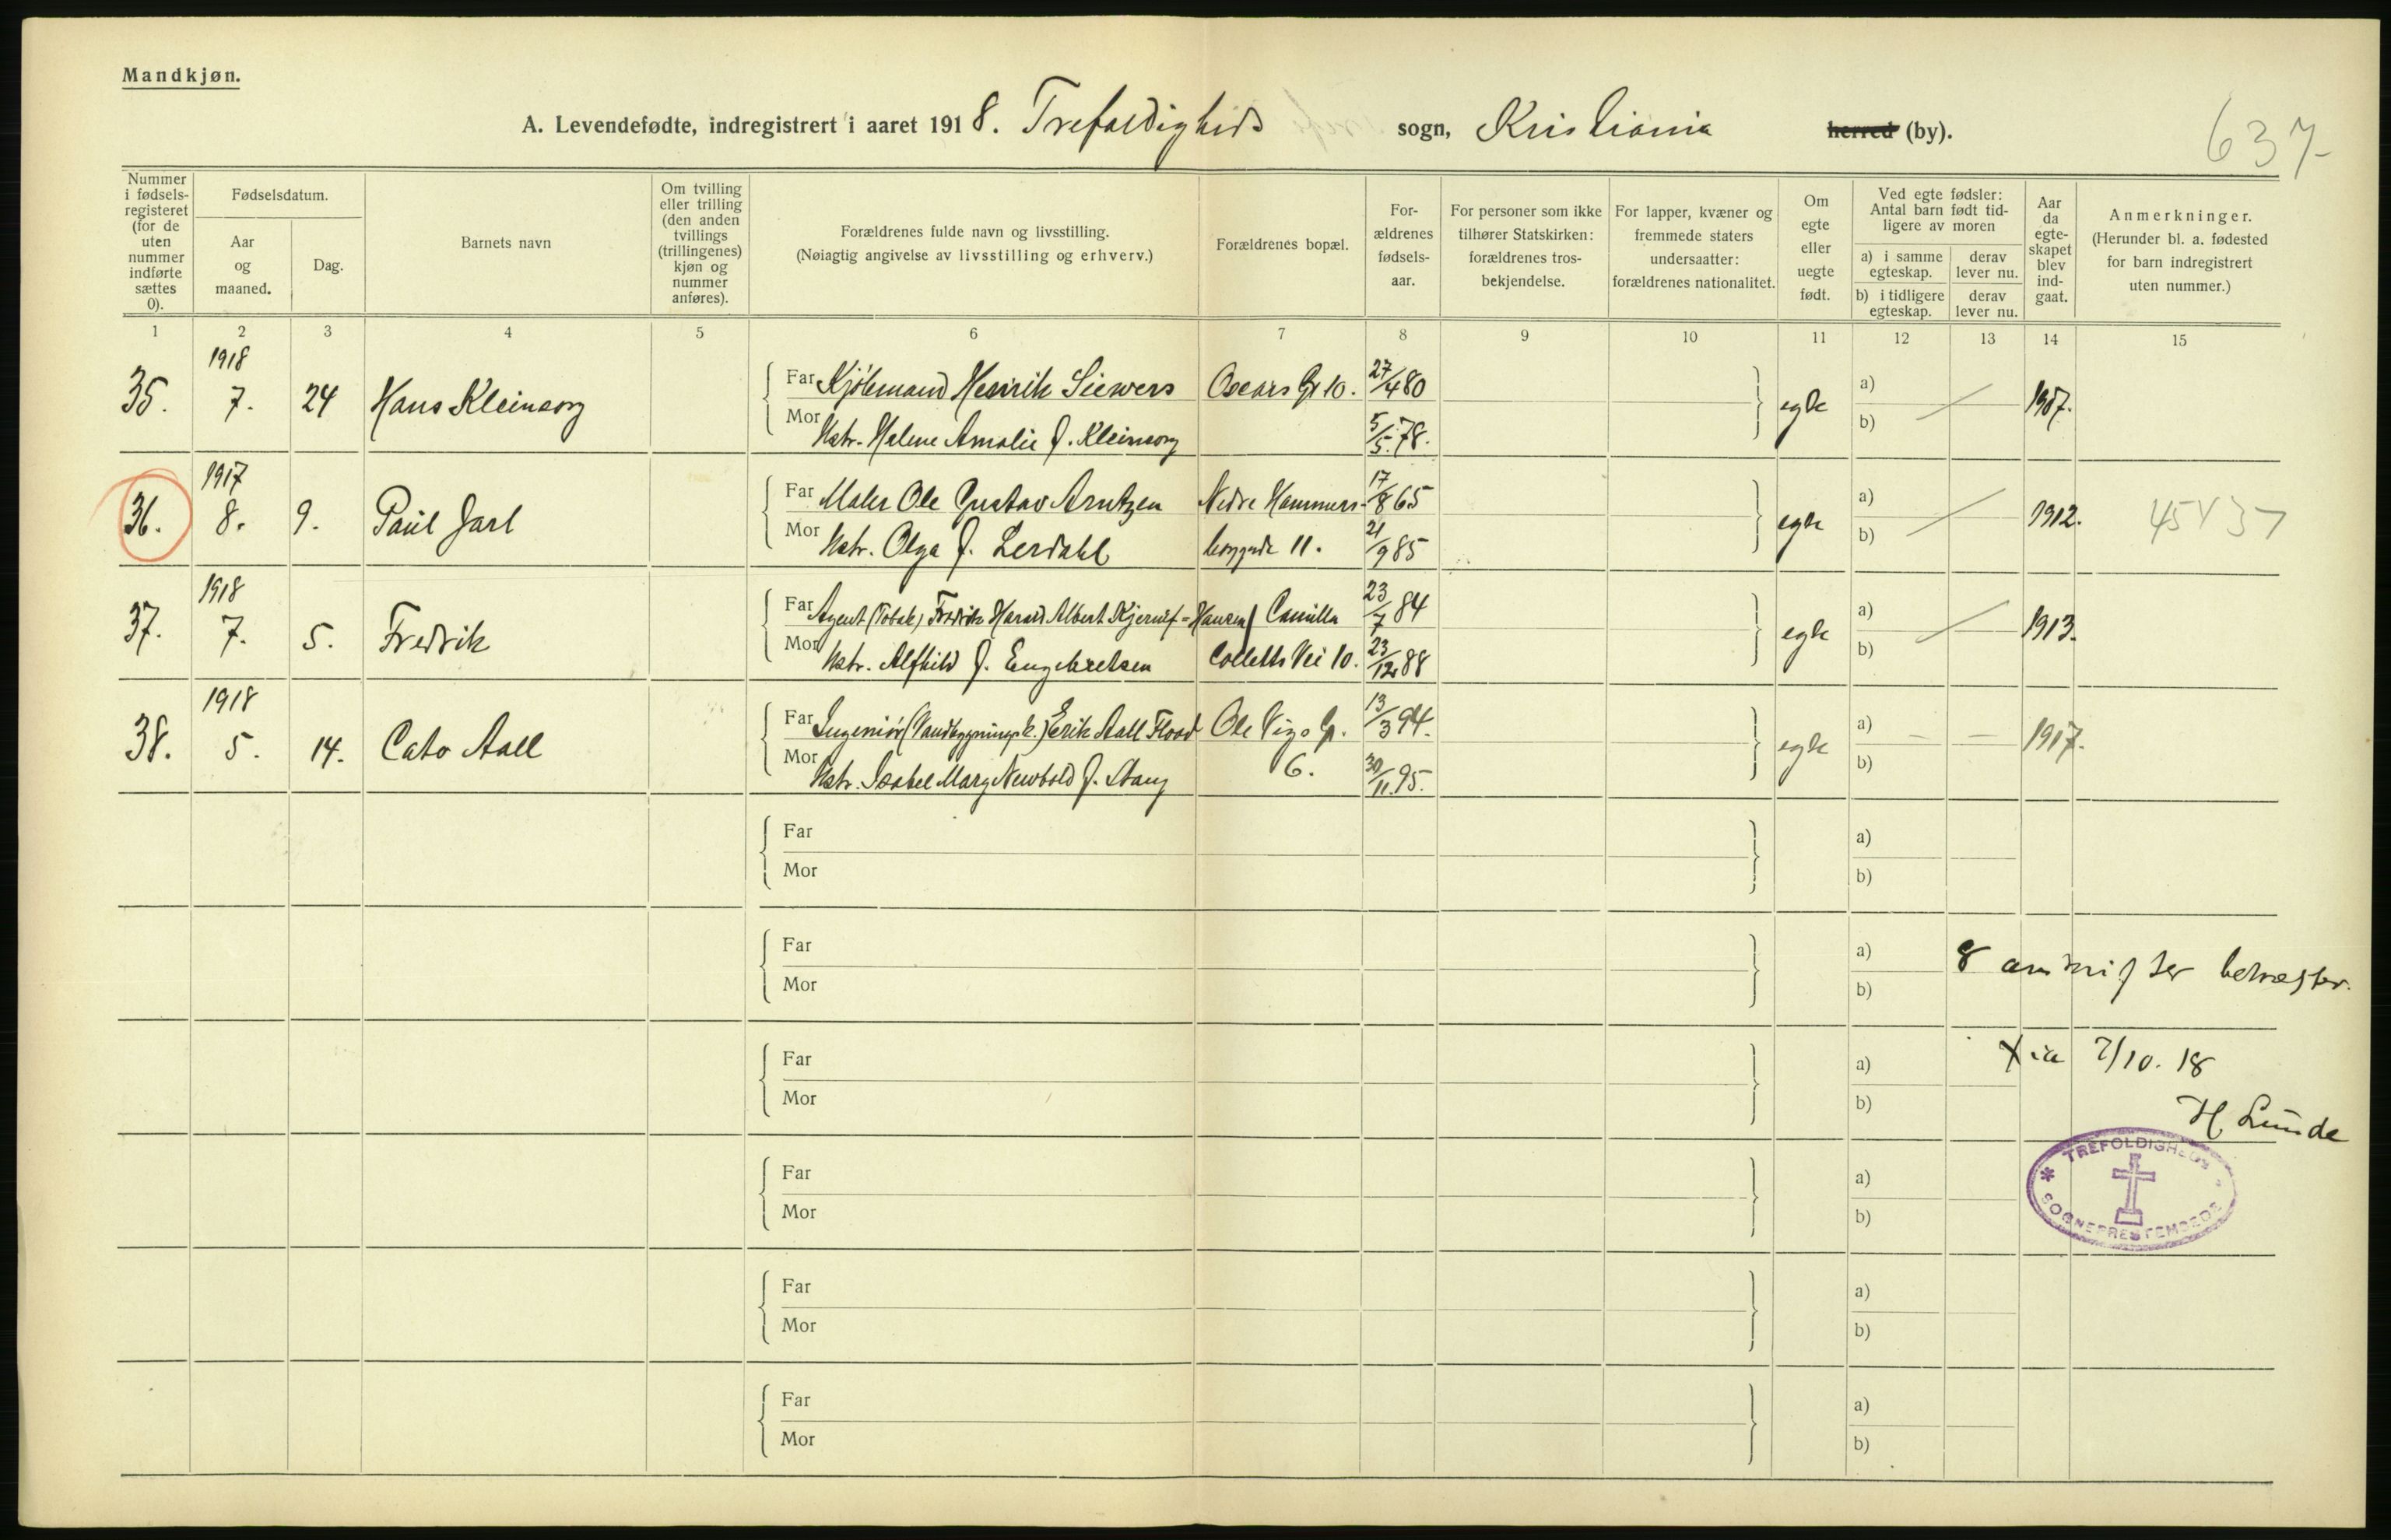 Mandkjøn.
A. Levendefødte, indregistrert i aaret 1918. Trefoldigheds sogn, Kristiania herred (by).
637
Nummer i fødsels-registeret (for de uten nummer indførte sættes 0).
Fødselsdatum.
Aar og maaned.
Dag.
Barnets navn
Om tvilling eller trilling (den anden tvillings (trillingenes) kjøn og nummer anføres).
Forældrenes fulde navn og livsstilling.
(Nøiagtig angivelse av livsstilling og erhverv.)
Forældrenes bopæl.
For-ældrenes fødsels-aar.
For personer som ikke tilhører Statskirken: forældrenes tros-bekjendelse.
For lapper, kvæner og fremmede staters undersaatter: forældrenes nationalitet.
Om egte eller uegte født.
Ved egte fødsler: Antal barn født tid-ligere av moren
a) i samme egteskap.
derav lever nu.
b) i tidligere egteskap.
derav lever nu.
Aar da egte-skapet blev ind-gaat.
Anmerkninger.
(Herunder bl. a. fødested for barn indregistrert uten nummer.)
1 2 3 4 5 6 7 8 9 10 11 12 13 14 15
1918
35. 7. 24 Hans Kleinsorg
Far Kjøbmand Henrik Siewers Oscars Gt 10. 27/4 80
Mor Hstr. Helene Amalie f. Kleinsorg 5/5. 78.
egte a) b) 1907.
1917
36. 8. 9. Paul Jarl
Far Maler Ole Gustav Arntzen Nedre Hammers- 17/8 65
Mor Hstr. Olga f. Lerdahl borggade 11. 21/9 85
egte a) b) 1912. 45 V 37
1918
37. 7. 5. Fredrik
Far Agent (Tobak) Fredrik Harald Albert Kjerulf-Hansen Camilla 23/7 84
Mor Hstr. Alfhild f. Engebretsen Colletts Vei 10. 23/12 88
egte a) b) 1913.
1918
38. 5. 14. Cato Aall
Far Ingeniør (Vandbygningsk.) Erik Aall Flood Ole Vigs G. 13/3 94.
Mor Hstr. Isabel Mary Newbold f. Stang 6. 30/11. 95.
egte a) b) 1917.
Far a)
Mor b)
Far a)
Mor b)
8 avskrifter bekræfter.
Far a)
Mor b)
Xia 7/10. 18
H. Lunde
TREFOLDIGHEDS SOGNEPRESTEMBEDE
Far a)
Mor b)
Far a)
Mor b)
Far a)
Mor b)